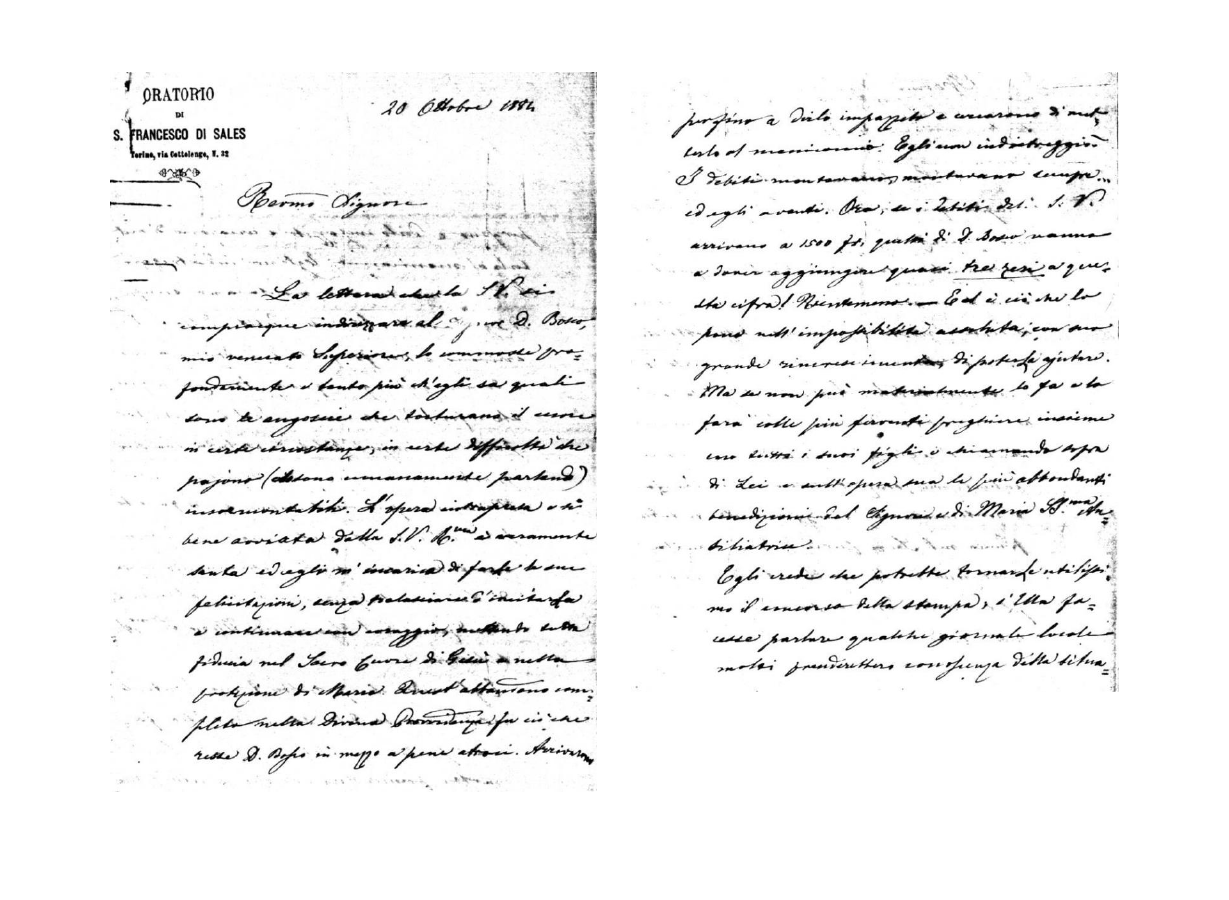 ORATORIO
DI
S. FRANCESCO DI SALES
Torino, via Cottolengo, N. 32
20 Ottobre 1884
Revmo Signore
La lettera che la S. V. si
compiacque indirizzare al D. Bosco,
mio venerato Superiore, lo commosse pro=
fondamente e tanto più ch'egli sa quali
sono le angoscie che torturano il cuore
in certe circostanze, in certe difficoltà che
pajono (almeno umanamente parlando)
insormontabili. L'opera intrapresa e sì
bene avviata dalla S. V. R.ma è veramente
santa ed egli m'incarica di farle le sue
felicitazioni, senza tralasciare d'incitarla
a continuare con coraggio, mettendo tutta
fiducia nel Sacro Cuore di Gesù e nella
protezione di Maria. Quest'abbandono com=
pleto nella Divina Provvidenza fu ciò che
resse D. Bosco in mezzo a pene atroci. Arrivarono
perfino a dirlo impazzito e cercarono di met=
terlo al manicomio. Egli non indietreggiò.
I debiti montavano, montavano sempre...
ed egli avanti. Ora, se i debiti del. S. V.
arrivano a 1500 fr. quelli di D. Bosco vanno
a dover aggiungere quasi tre zeri a que=
sta cifra! Nientemeno. — Ed è ciò che lo
pone nell'impossibilità assoluta, con suo
grande rincrescimento, di poterla ajutare.
Ma se non può materialmente lo fa e lo
farà colle più ferventi preghiere insieme
con tutti i suoi figli e chiamando sopra
di Lei e sull'opera sua le più abbondanti
benedizioni del Signore e di Maria SS.ma Au=
siliatrice.
Egli crede che potrebbe tornarle utilissi=
mo il concorso della stampa, s'Ella fa=
cesse parlare qualche giornale locale
molti prenderebbero conoscenza della situa=